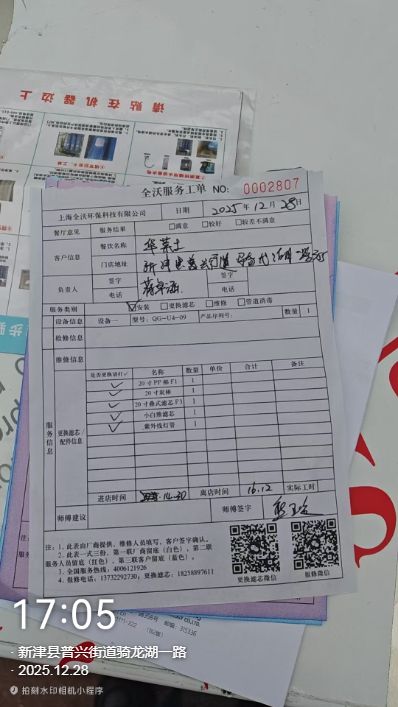 请贴在机器边上
全沃服务工单 NO: 0002807
上海全沃环保科技有限公司 日期 2025年12月28日
餐厅意见 服务结果 □满意 □较好 □较差不满意
客户信息 餐饮名称 华莱士
门店地址
负责人 签字 签字
电话 电话
服务类别 ☑安装 □更换滤芯 □维修 □管道消毒
设备信息 设备一 型号:QG-U4-09 产品序列号: 数量 1
检修信息
维修信息
服务信息 更换滤芯/配件信息
是否更换请打√ 名称 数量 单价 合计 备注
✓ 20寸PP棉F1 1
✓ 20寸炭棒 1
✓ 20寸叠式滤芯F3 1
✓ 小白雅滤芯 1
✓ 紫外线灯管 1
进店时间 离店时间 16.12 实际工时
师傅建议 师傅签字
注:1、此表由厂商提供、维修人员填写、客户签字确认。
2、此表一式三份,第一联厂商留底(白色)、第二联
服务人员留底(红色)、第三联客户留底(蓝色)。
3、全国服务热线:4006121926
4、维修电话:13732292730,更换滤芯:18218897611
更换滤芯微信 报修微信
17:05
· 新津县普兴街道骑龙湖一路
· 2025.12.28
拍刻水印相机小程序